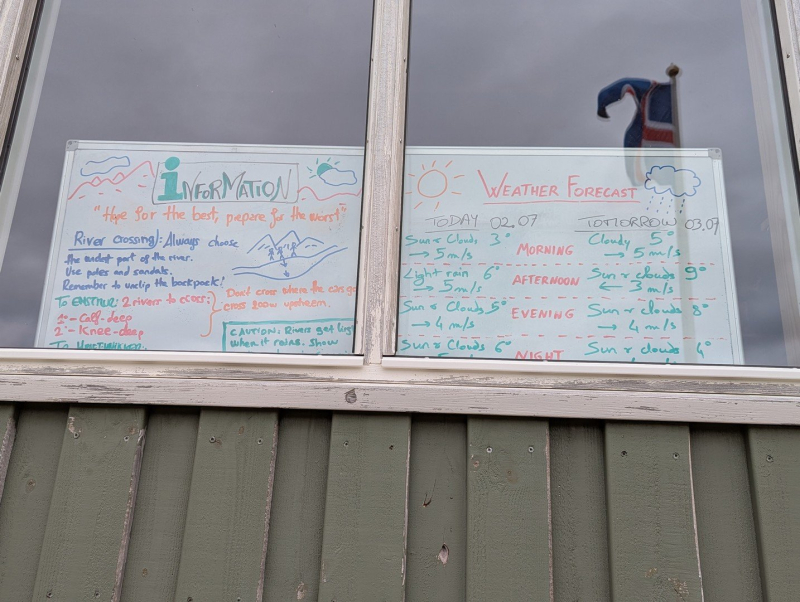 iNFORMATION
"Hope for the best, prepare for the worst"
River crossing: Always choose
the widest part of the river.
Use poles and sandals.
Remember to unclip the backpack!
To EMSTRUR: 2 rivers to cross:
1º - Calf-deep
2º - Knee-deep
Don't cross where the cars go
cross 200m upstream.
CAUTION: Rivers get
when it rains. Show
WEATHER FORECAST
TODAY 02.07
TOMORROW 03.07
Sun & Clouds 3° MORNING Cloudy 5°
→ 5 m/s → 5 m/s
Light rain 6° AFTERNOON Sun & clouds 9°
→ 5 m/s ← 3 m/s
Sun & Clouds 5° EVENING Sun & clouds 8°
→ 4 m/s → 4 m/s
Sun & Clouds 6° NIGHT Sun & clouds 4°